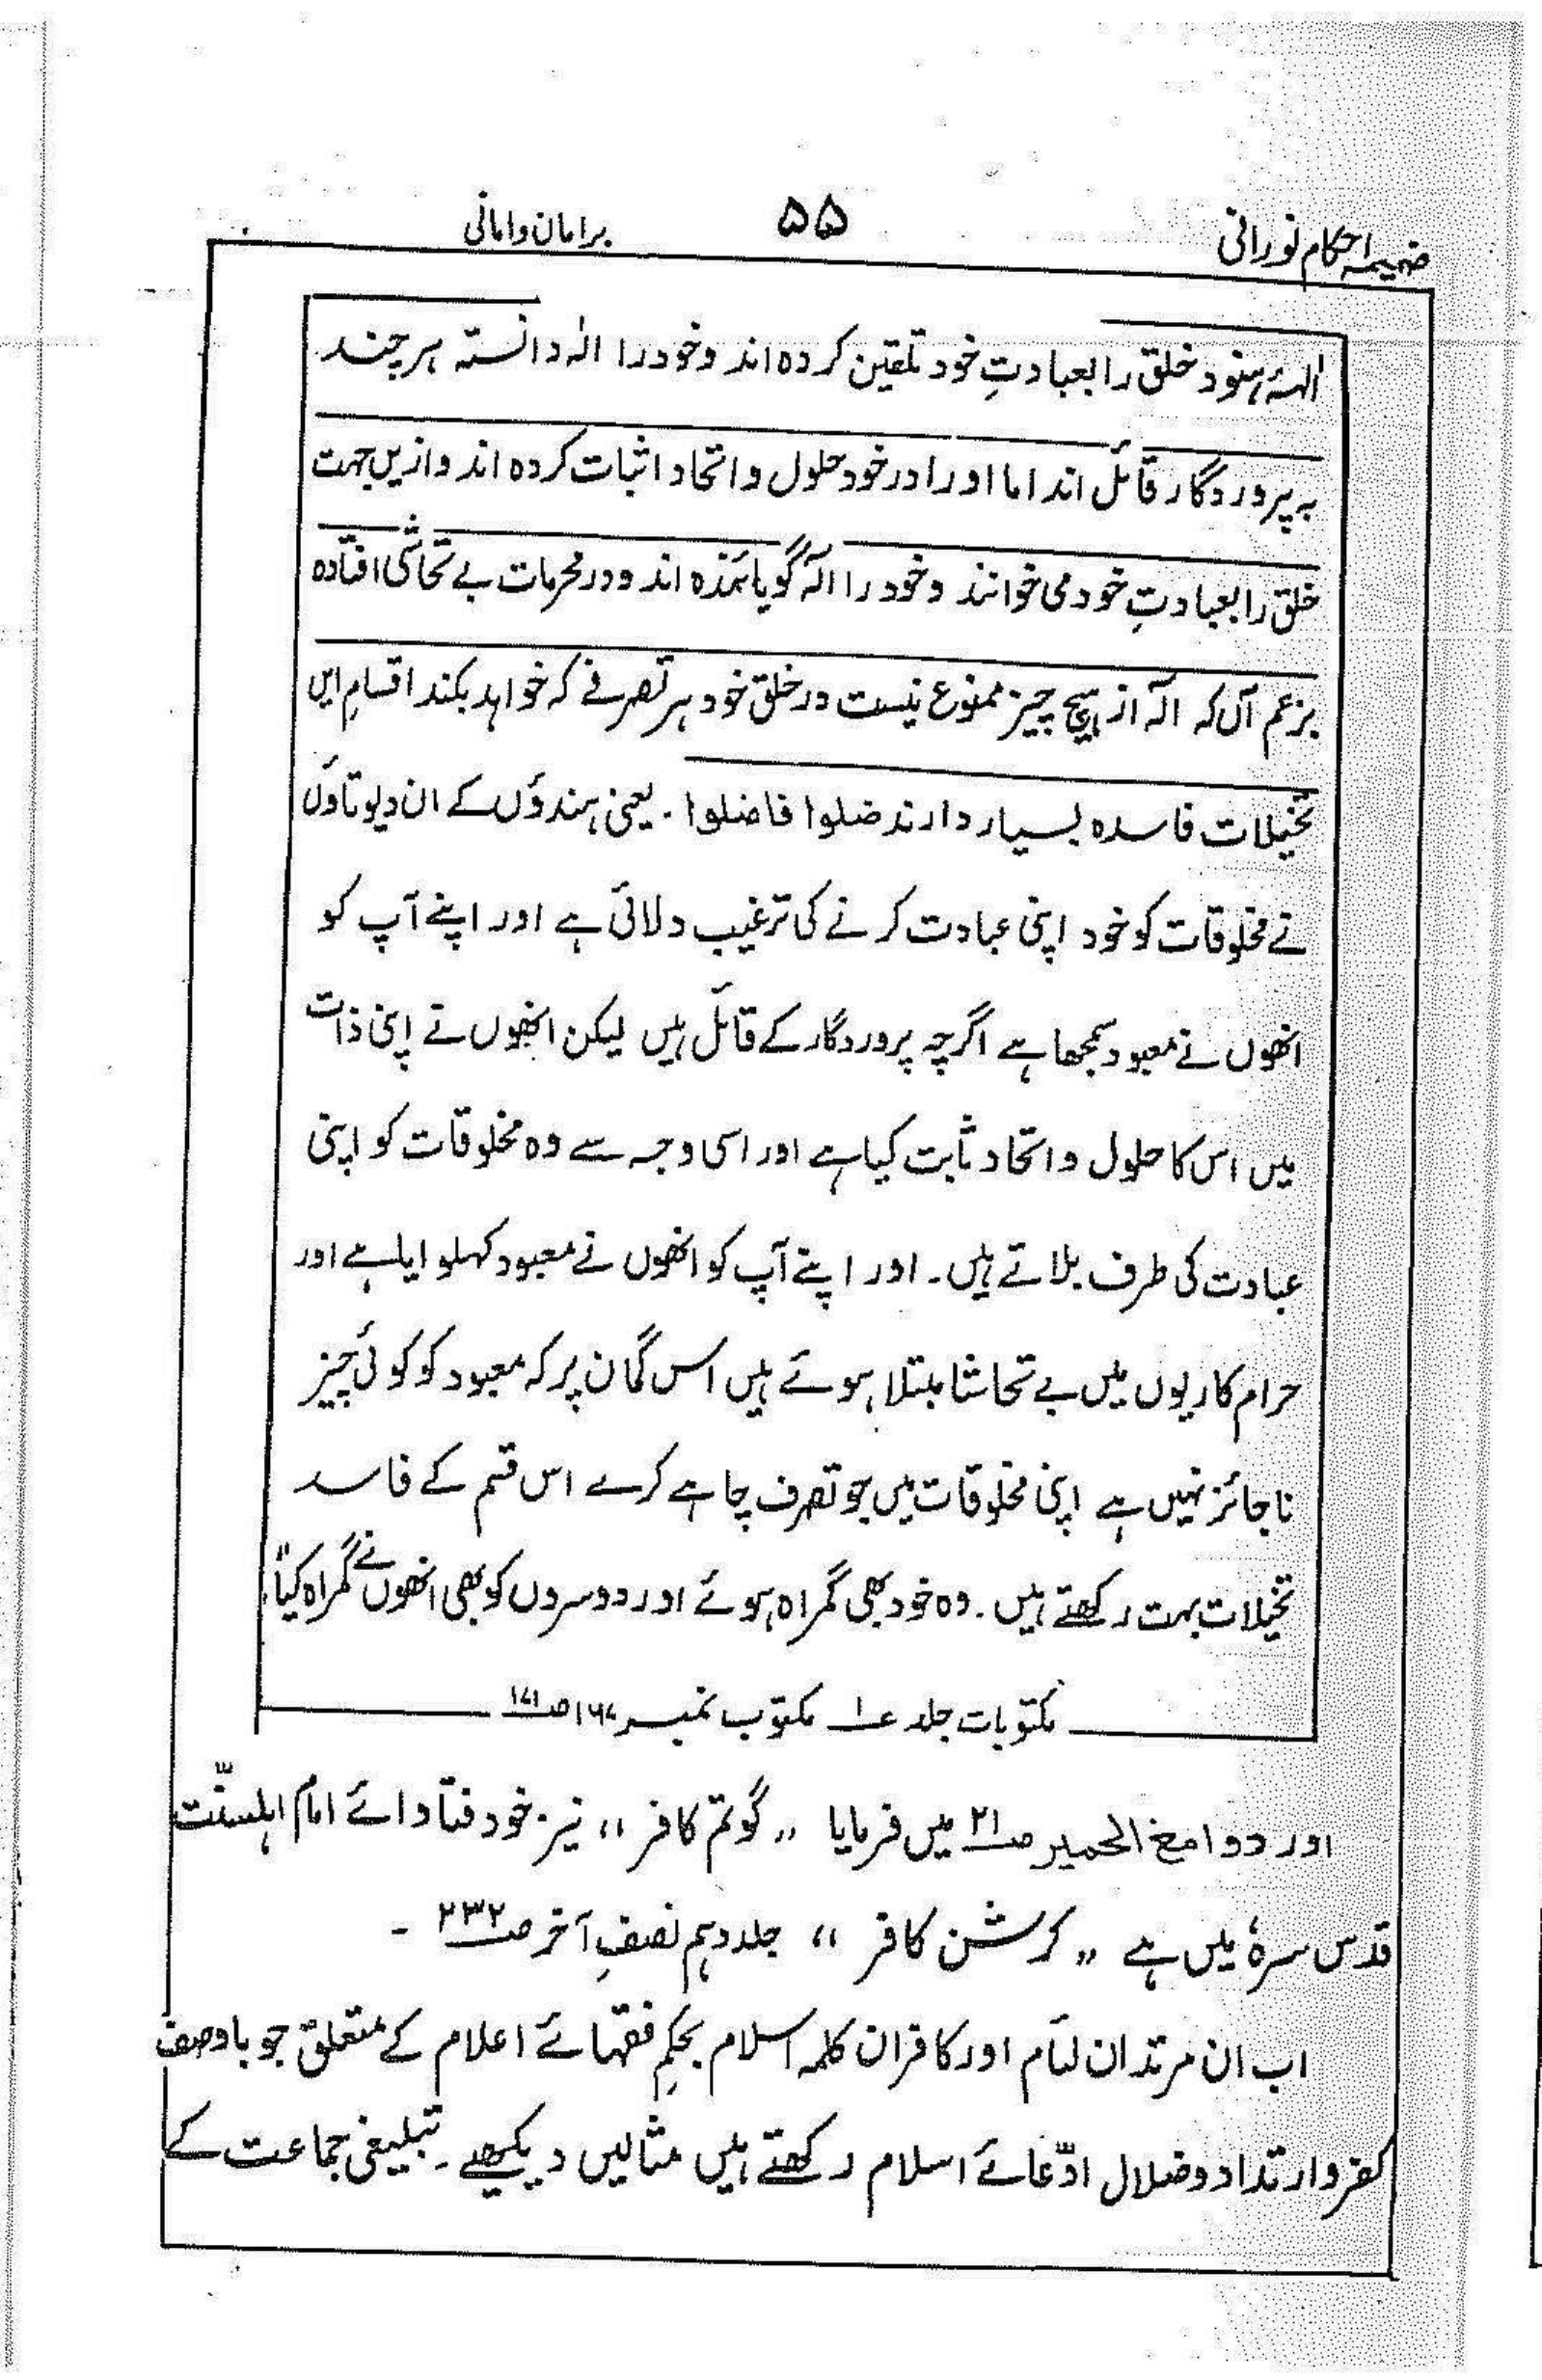 ضمیمہ احکام نورانی ۵۵ برامان وامانی
الہۂ ہنود خلق را بعبادتِ خود تلقین کردہ اند وخود را الٰہ دانستہ ہر چند
بہ پروردگار قائل اند اما اورا درخود حلول و اتحاد اثبات کردہ اند وازیں جہت
خلق را بعبادتِ خود می خوانند وخود را الٰہ گویانندہ اند ودر محرمات بے تحاشی افتادہ
بزعم آں کہ الٰہ از ہیچ چیز ممنوع نیست در خلق خود ہر تصرفے کہ خواہد بکند اقسامِ ایں
تخیلات فاسدہ بسیار دارند ضلوا فاضلوا ۔ یعنی ہندوؤں کے ان دیوتاؤں
نے مخلوقات کو خود اپنی عبادت کرنے کی ترغیب دلائی ہے اور اپنے آپ کو
انھوں نے معبود سمجھا ہے اگرچہ پروردگار کے قائل ہیں لیکن انھوں نے اپنی ذات
میں اس کا حلول واتحاد ثابت کیا ہے اور اسی وجہ سے وہ مخلوقات کو اپنی
عبادت کی طرف بلاتے ہیں ۔ اور اپنے آپ کو انھوں نے معبود کہلوایا ہے اور
حرام کاریوں میں بے تحاشا مبتلا ہوئے ہیں اس گمان پر کہ معبود کو کوئی چیز
ناجائز نہیں ہے اپنی مخلوقات میں جو تصرف چاہے کرے اس قسم کے فاسد
تخیلات بہت رکھتے ہیں ۔ وہ خود بھی گمراہ ہوئے اور دوسروں کو بھی انھوں نے گمراہ کیا"
مکتوبات جلد ع۱ مکتوب نمبر ۱۶۷ ص۱۷۱
اور دوامغ الحمیر ص۲۱ میں فرمایا ,, گوتم کافر ،، نیز خود فتاوائے امام اہلسنّت
قدس سرہٗ میں ہے ,, کرشن کافر ،، جلد دہم نصفِ آخر ص۲۳۲ ۔
اب ان مرتدان لئام اور کافران کلمہ اسلام بحکمِ فقہائے اعلام کے متعلق جو باوصف
کفر وارتداد وضلال ادّعائے اسلام رکھتے ہیں مثالیں دیکھیے ۔ تبلیغی جماعت کے